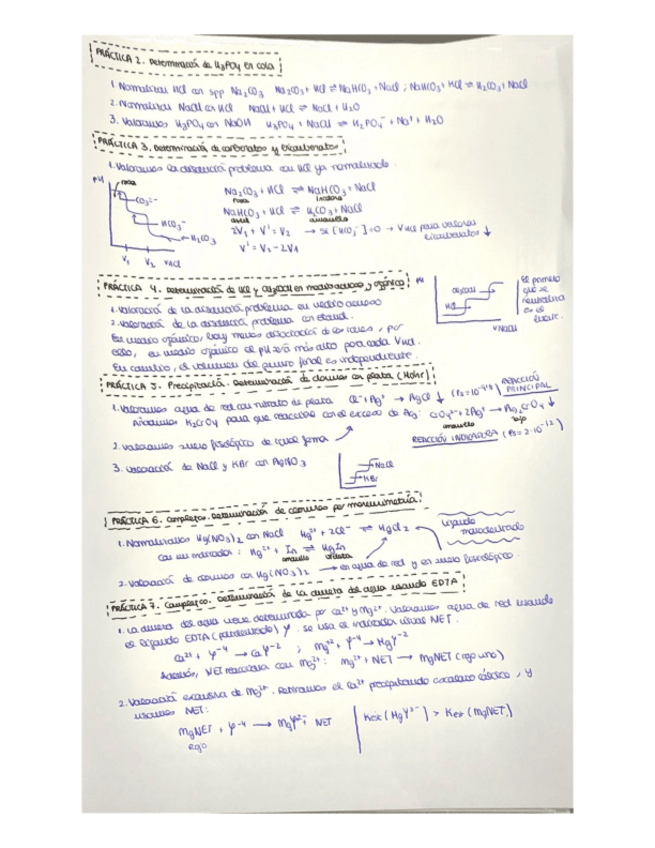 PRÁCTICA 2. Determinación de H3PO4 en cola
1. Normalizar HCl con spp Na2CO3 Na2CO3 + HCl ⇌ NaHCO3 + NaCl ; NaHCO3 + HCl ⇌ H2CO3 + NaCl
2. Normalizar NaOH con HCl NaOH + HCl ⇌ NaCl + H2O
3. Valoramos H3PO4 con NaOH H3PO4 + NaOH ⇌ H2PO4⁻ + Na⁺ + H2O
PRÁCTICA 3. Determinación de carbonatos y bicarbonatos
1. Valoramos la disolución problema con HCl ya normalizado.
pH
rosa
CO3²⁻
HCO3⁻
H2CO3
V1 V2 VHCl
Na2CO3 + HCl ⇌ NaHCO3 + NaCl
rosa incolora
NaHCO3 + HCl ⇌ H2CO3 + NaCl
azul amarillo
2V1 + V' = V2 → Si [HCO3⁻] = 0 → VHCl para valorar bicarbonatos ↓
V' = V2 - 2V1
PRÁCTICA 4. Determinación de HCl y en medio acuoso y orgánico
1. Valoración de la disolución problema en medio acuoso
2. Valoración de la disolución problema en etanol.
En medio orgánico, hay menos disociación de los iones, por
eso, en medio orgánico el pH será más alto para cada VHCl.
En cambio, el volumen del punto final es independiente.
pH
HCl
VNaOH
El primero
que se
neutraliza
es el
fuerte.
PRÁCTICA 5. Precipitación. Determinación de cloruros con plata (Mohr)
1. Valoramos agua de red con nitrato de plata Cl⁻ + Ag⁺ → AgCl ↓ (Ps = 10) REACCIÓN PRINCIPAL
Añadimos K2CrO4 para que reaccione con el exceso de Ag: CrO4²⁻ + 2Ag⁺ → Ag2CrO4 ↓
amarillo rojo
REACCIÓN INDICADORA (Ps = 2·10⁻¹²)
2. Valoramos suero fisiológico de igual forma
3. Valoración de NaCl y KBr con AgNO3
NaCl
KBr
PRÁCTICA 6. Complejos. Determinación de cloruros por mercurimetría.
1. Normalizamos Hg(NO3)2 con NaCl Hg²⁺ + 2Cl⁻ ⇌ HgCl2
con un indicador: Hg²⁺ + In ⇌ HgIn
amarillo violeta
ligando
monodentado
2. Valoración de cloruros con Hg(NO3)2 → en agua de red y en suero fisiológico.
PRÁCTICA 7. Complejos. Determinación de la dureza del agua usando EDTA
1. La dureza del agua viene determinada por Ca²⁺ y Mg²⁺. Valoramos agua de red usando
el ligando EDTA Y. Se usa el indicador NET.
Ca²⁺ + Y⁻⁴ → CaY⁻² ; Mg²⁺ + Y⁻⁴ → MgY⁻²
Además, NET reacciona con Mg²⁺: Mg²⁺ + NET → MgNET (rojo vino)
2. Valoración exclusiva de Mg²⁺. Retiramos el Ca²⁺ precipitando oxalato cálcico, y
usamos NET:
MgNET + Y⁻⁴ → MgY²⁻ + NET
rojo
Kest (MgY²⁻) > Kest (MgNET)